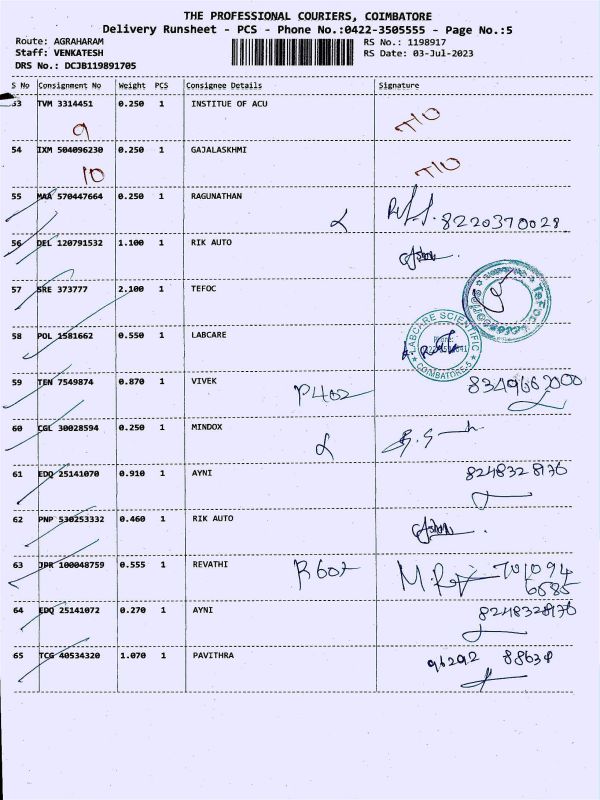 THE PROFESSIONAL COURIERS, COIMBATORE
Delivery Runsheet - PCS - Phone No.:0422-3505555 - Page No.:5
Route: AGRAHARAM RS No.: 1198917
Staff: VENKATESH RS Date: 03-Jul-2023
DRS No.: DCJB119891705
S No Consignment No Weight PCS Consignee Details Signature
53 TVM 3314451 0.250 1 INSTITUE OF ACU
9
54 IXM 504096230 0.250 1 GAJALASKHMI
10
55 MAA 570447664 0.250 1 RAGUNATHAN
8220370028
56 DEL 120791532 1.100 1 RIK AUTO
57 SRE 373777 2.100 1 TEFOC
58 POL 1581662 0.550 1 LABCARE
LABCARE SCIENTIFIC
COIMBATORE-5
59 TEN 7549874 0.870 1 VIVEK
P402 8349662000
60 CGL 30028594 0.250 1 MINDOX
61 EDQ 25141070 0.910 1 AYNI 8248328176
62 PNP 530253332 0.460 1 RIK AUTO
63 JPR 100048759 0.555 1 REVATHI
64 EDQ 25141072 0.270 1 AYNI 8248328176
65 TCG 40534320 1.070 1 PAVITHRA